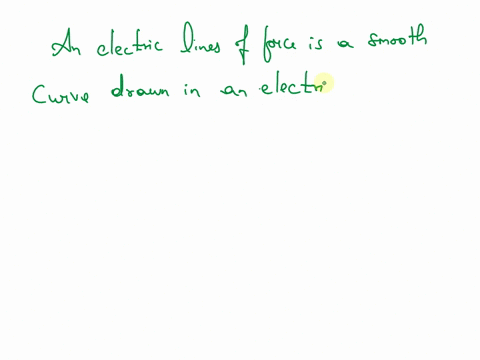 An electric lines of force is a smooth
Curve drawn in an electri